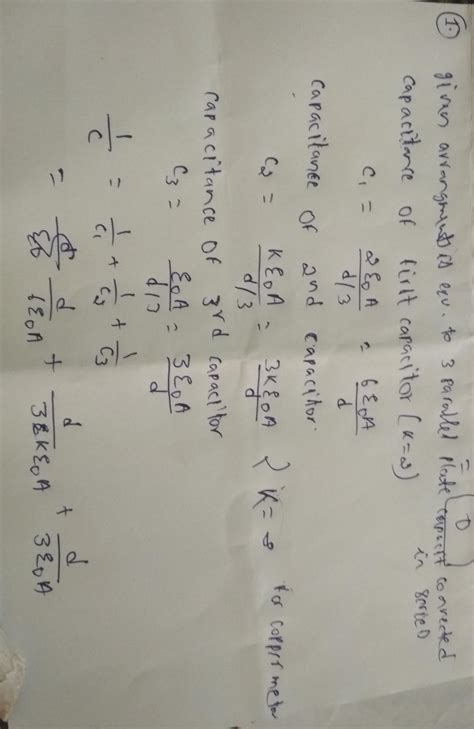 1.
given arrangment is eqv. to 3 parallel plate capacit connected
in series
capacitance of first capacitor (K=2)
C₁ = 2ε₀A / d/3 = 6ε₀A / d
capacitance of 2nd capacitor.
C₂ = Kε₀A / d/3 = 3Kε₀A / d } K = ∞ for copper metal
capacitance of 3rd capacitor
C₃ = ε₀A / d/3 = 3ε₀A / d
1/C = 1/C₁ + 1/C₂ + 1/C₃
= d / 6ε₀A + d / 3Kε₀A + d / 3ε₀A